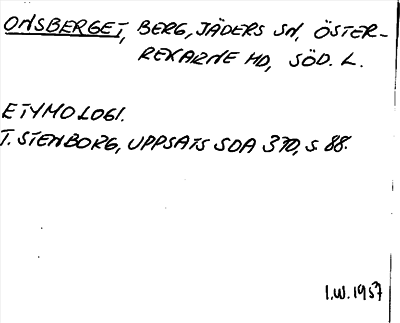 ONSBERGET, BERG, JÄDERS SN, ÖSTER-
REKARNE HD, SÖD. L.
ETYMOLOGI.
T. STENBORG, UPPSATS SDA 370, S. 88.
I.W. 1957